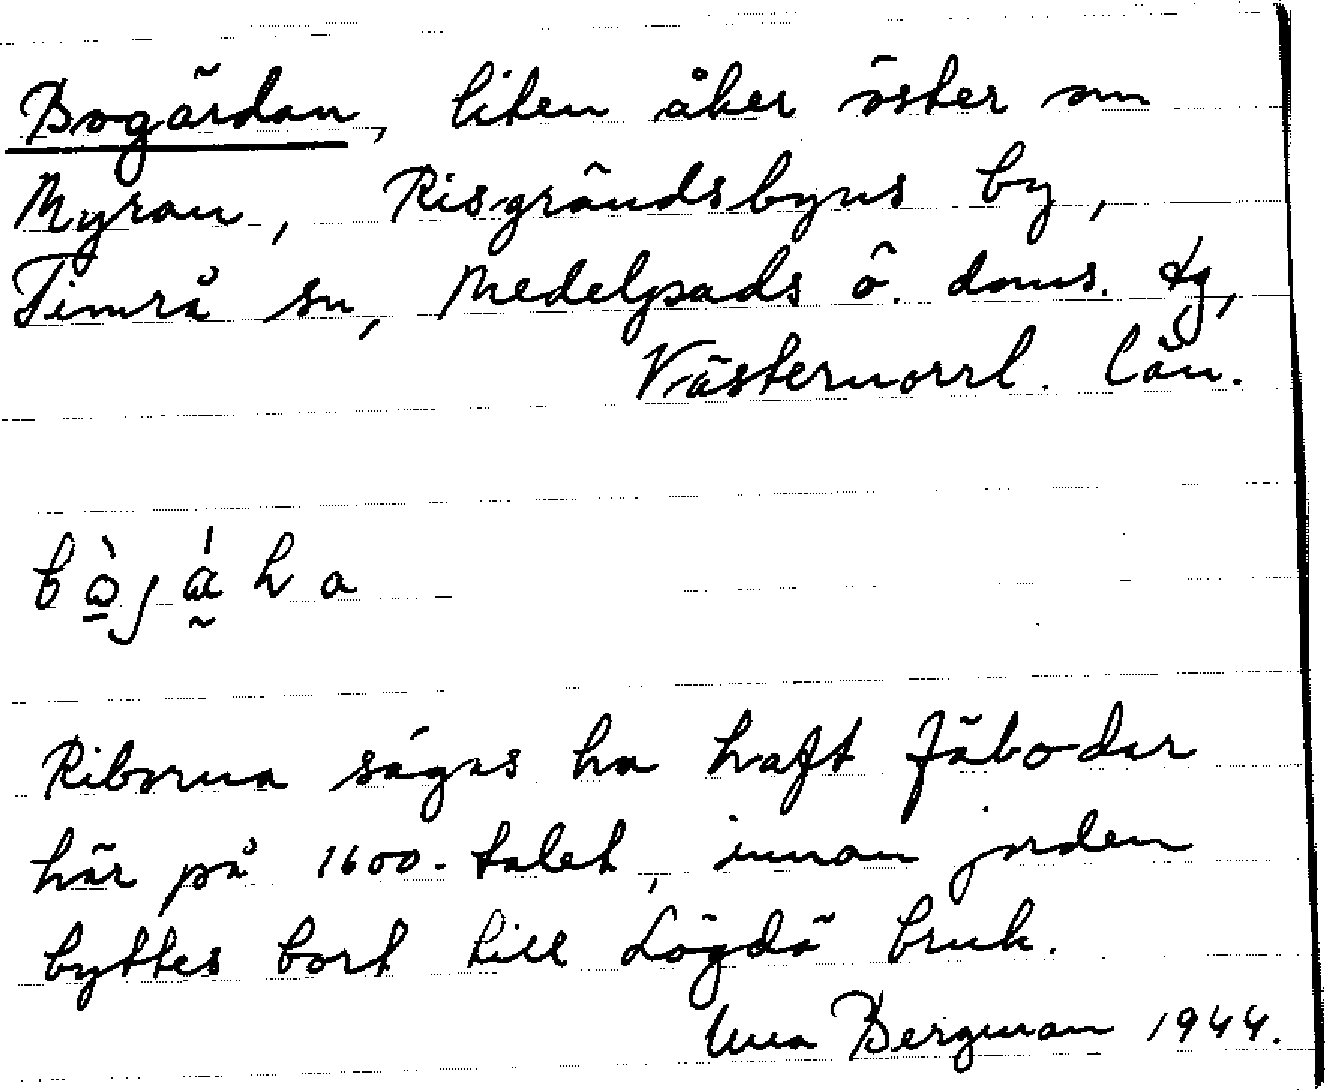 Bogärdan, liten åker öster om
Myran, Risgrändsbyns by,
Timrå sn, Medelpads ö. doms. tg,
Västernorrl. län.
Riborna sägas ha haft fäbodar
här på 1600-talet, innan jorden
byttes bort till Lögdö bruk.
Bergman 1944.